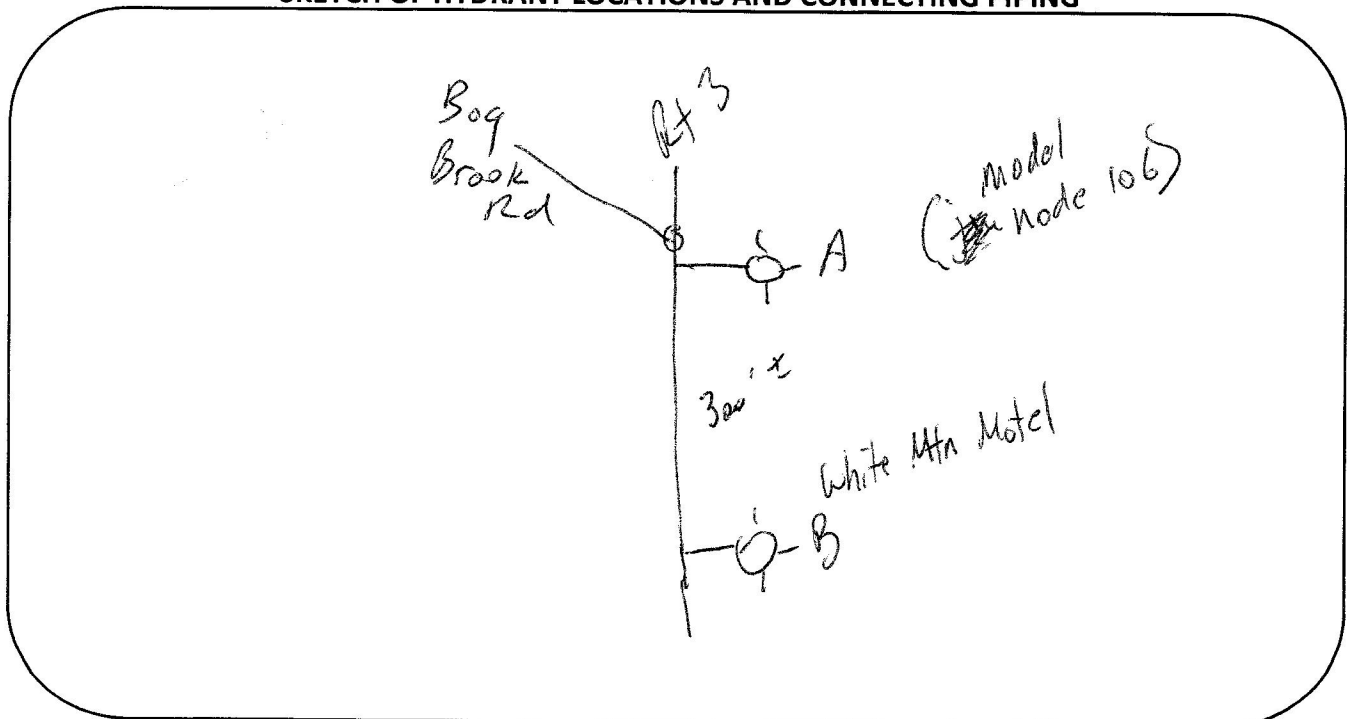 SKETCH OF HYDRANT LOCATIONS AND CONNECTING PIPING
Bog
Brook
Rd
Rt 3
A
(Model
node 106)
300' ±
White Mtn Motel
B